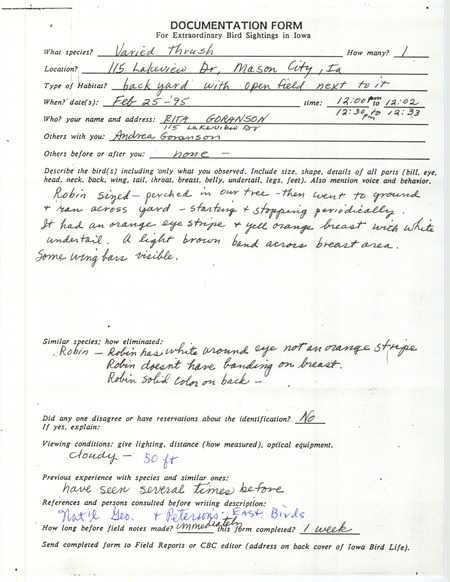 DOCUMENTATION FORM
For Extraordinary Bird Sightings in Iowa
What species? Varied Thrush How many? 1
Location? 115 Lakeview Dr, Mason City, Ia
Type of Habitat? back yard with open field next to it
When? date(s): Feb 25-'95 time: 12:00 pm to 12:02
12:30 pm to 12:33
Who? your name and address: RITA GORANSON
115 Lakeview Dr
Others with you: Andrea Goranson
Others before or after you: none -
Describe the bird(s) including only what you observed. Include size, shape, details of all parts (bill, eye,
head, neck, back, wing, tail, throat, breast, belly, undertail, legs, feet). Also mention voice and behavior.
Robin sized - perched in our tree - then went to ground
+ ran across yard - starting + stopping periodically.
It had an orange eye stripe + yell orange breast with white
undertail. A light brown band across breast area.
Some wing bars visible.
Similar species; how eliminated:
Robin - Robin has white around eye not an orange stripe
Robin doesn't have banding on breast.
Robin solid color on back -
Did any one disagree or have reservations about the identification? No
If yes, explain:
Viewing conditions: give lighting, distance (how measured), optical equipment.
cloudy - 50 ft
Previous experience with species and similar ones:
have seen several times before
References and persons consulted before writing description:
Nat'l Geo. + Peterson's East Birds
How long before field notes made? immediately this form completed? 1 week
Send completed form to Field Reports or CBC editor (address on back cover of Iowa Bird Life).